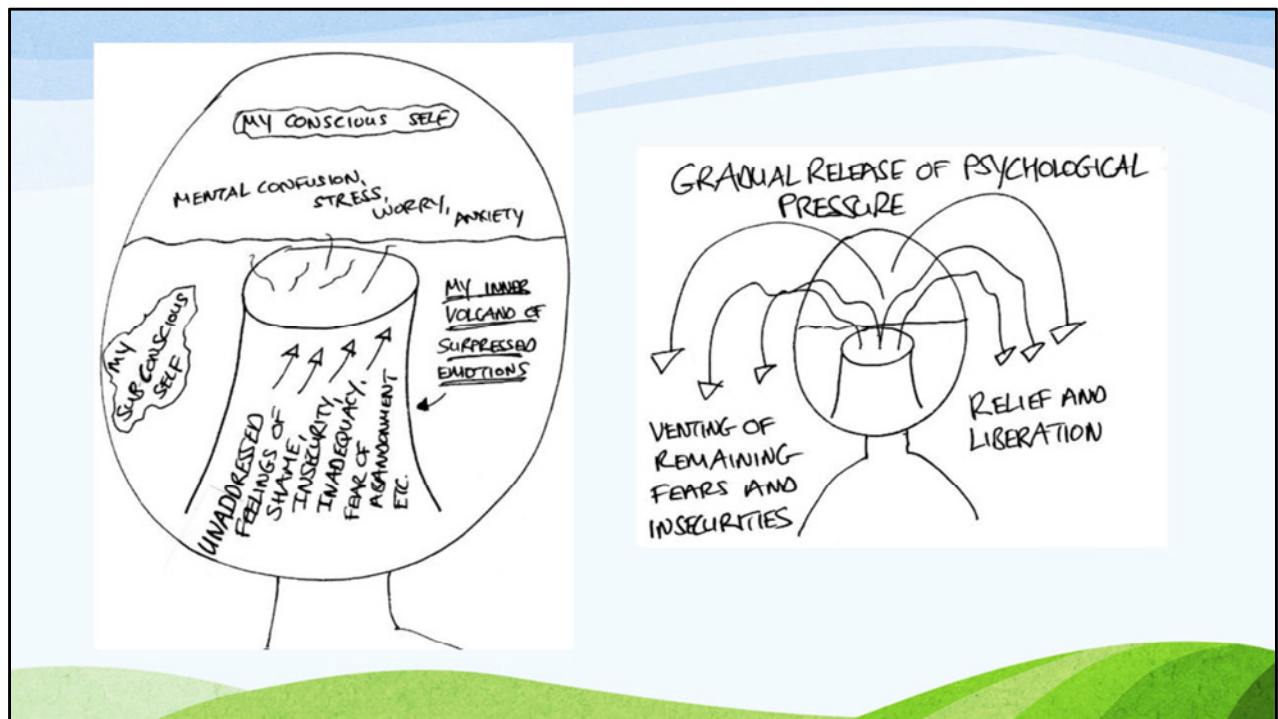 MY CONSCIOUS SELF
MENTAL CONFUSION,
STRESS,
WORRY,
ANXIETY
MY
SUBCONSCIOUS
SELF
MY INNER
VOLCANO OF
SURPRESSED
EMOTIONS
UNADDRESSED
FEELINGS OF
SHAME,
INSECURITY,
INADEQUACY,
FEAR OF
ABANDONMENT
ETC.
GRADUAL RELEASE OF PSYCHOLOGICAL
PRESSURE
VENTING OF
REMAINING
FEARS AND
INSECURITIES
RELIEF AND
LIBERATION